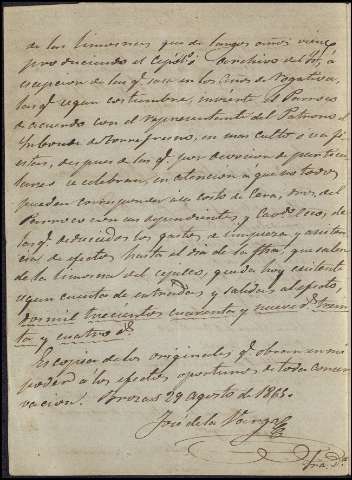 de las limosnas que de largos años viene
produciendo el cepillo archivo del Sto, á
escepcion de las qe. saca en los años de Rogativa,
las qe. segun costumbre, invierte el Parroco
de acuerdo con el representante del Patrono el
Vizconde de Torrefresno, en mas culto ó sus fi
estas, despues de las qe. por devocion de particu
lares se celebran, en atencion a que no todos
pueden corresponder a su costo de Cera, dros. del
Parroco con sus dependientes y
las qe. deducidos los gastos de limpieza y asisten
cia de efectos hasta el dia de la fha, que salen
de la limosna del cepillo, queda hoy existente
segun cuenta de entradas y salidas al efecto,
dos mil trescientos cuarenta y nueve rs. trein
ta y cuatro cs.
Es copia de los originales qe. obran en mi
poder á los efectos oportunos de toda conser
vacion. Brozas 29 agosto de 1865.
José de la